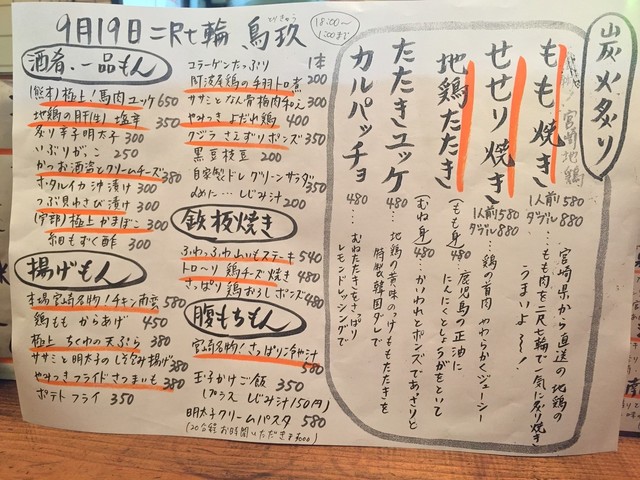 9月19日 二尺七輪 鳥玖
とりきゅう
18:00〜
1:00まで
酒肴、一品もん
(熊本)極上!馬肉ユッケ 650
地鶏の肝(生)塩辛 350
炙り辛子明太子 300
いぶりがっこ 250
かつお酒盗とクリームチーズ 380
ホタルイカ沖漬け 300
つぶ貝わさび漬け 300
極上かまぼこ 300
糸田もずく酢 300
揚げもん
本場宮崎名物!チキン南蛮 580
鶏ももからあげ 450
極上ちくわの天ぷら 380
ササミと明太子のしそ包み揚げ 380
やみつきフライドさつまいも 380
ポテトフライ 350
コラーゲンたっぷり 1本
阿波尾鶏の手羽トロ煮 200
ササミとなん骨梅肉和え 300
やみつきよだれ鶏 400
クジラさえずりポンズ 350
黒豆枝豆 200
自家製ドレ グリーンサラダ 350
〆に…しじみ汁 200
鉄板焼き
ふわっふわ山いもステーキ 540
トロ〜リ鶏チーズ焼き 480
さっぱり鶏おろしポンズ 480
腹もちもん
宮崎名物!さっぱり冷や汁 500
玉子かけご飯 350
(プラスしじみ汁150円)
明太子クリームパスタ 580
(20分程お時間いただきます)
炭火炙り
宮崎地鶏
もも焼き 1人前580 ダブル880
宮崎県から直送の地鶏の
もも肉を二尺七輪で一気に炙り焼き
うまいよ〜!
せせり焼き 1人前580 ダブル880
鶏の首肉 やわらかくジューシー
地鶏たたき
(もも身)480 … 鹿児島の正油に
にんにくとしょうがをといて
(むね身)480 … かいわれとポンズであっさりと
たたきユッケ 480 … 地鶏の黄味のっけももたたきを
特製韓国ダレで
カルパッチョ 480 … むねたたきをさっぱり
レモンドレッシングで